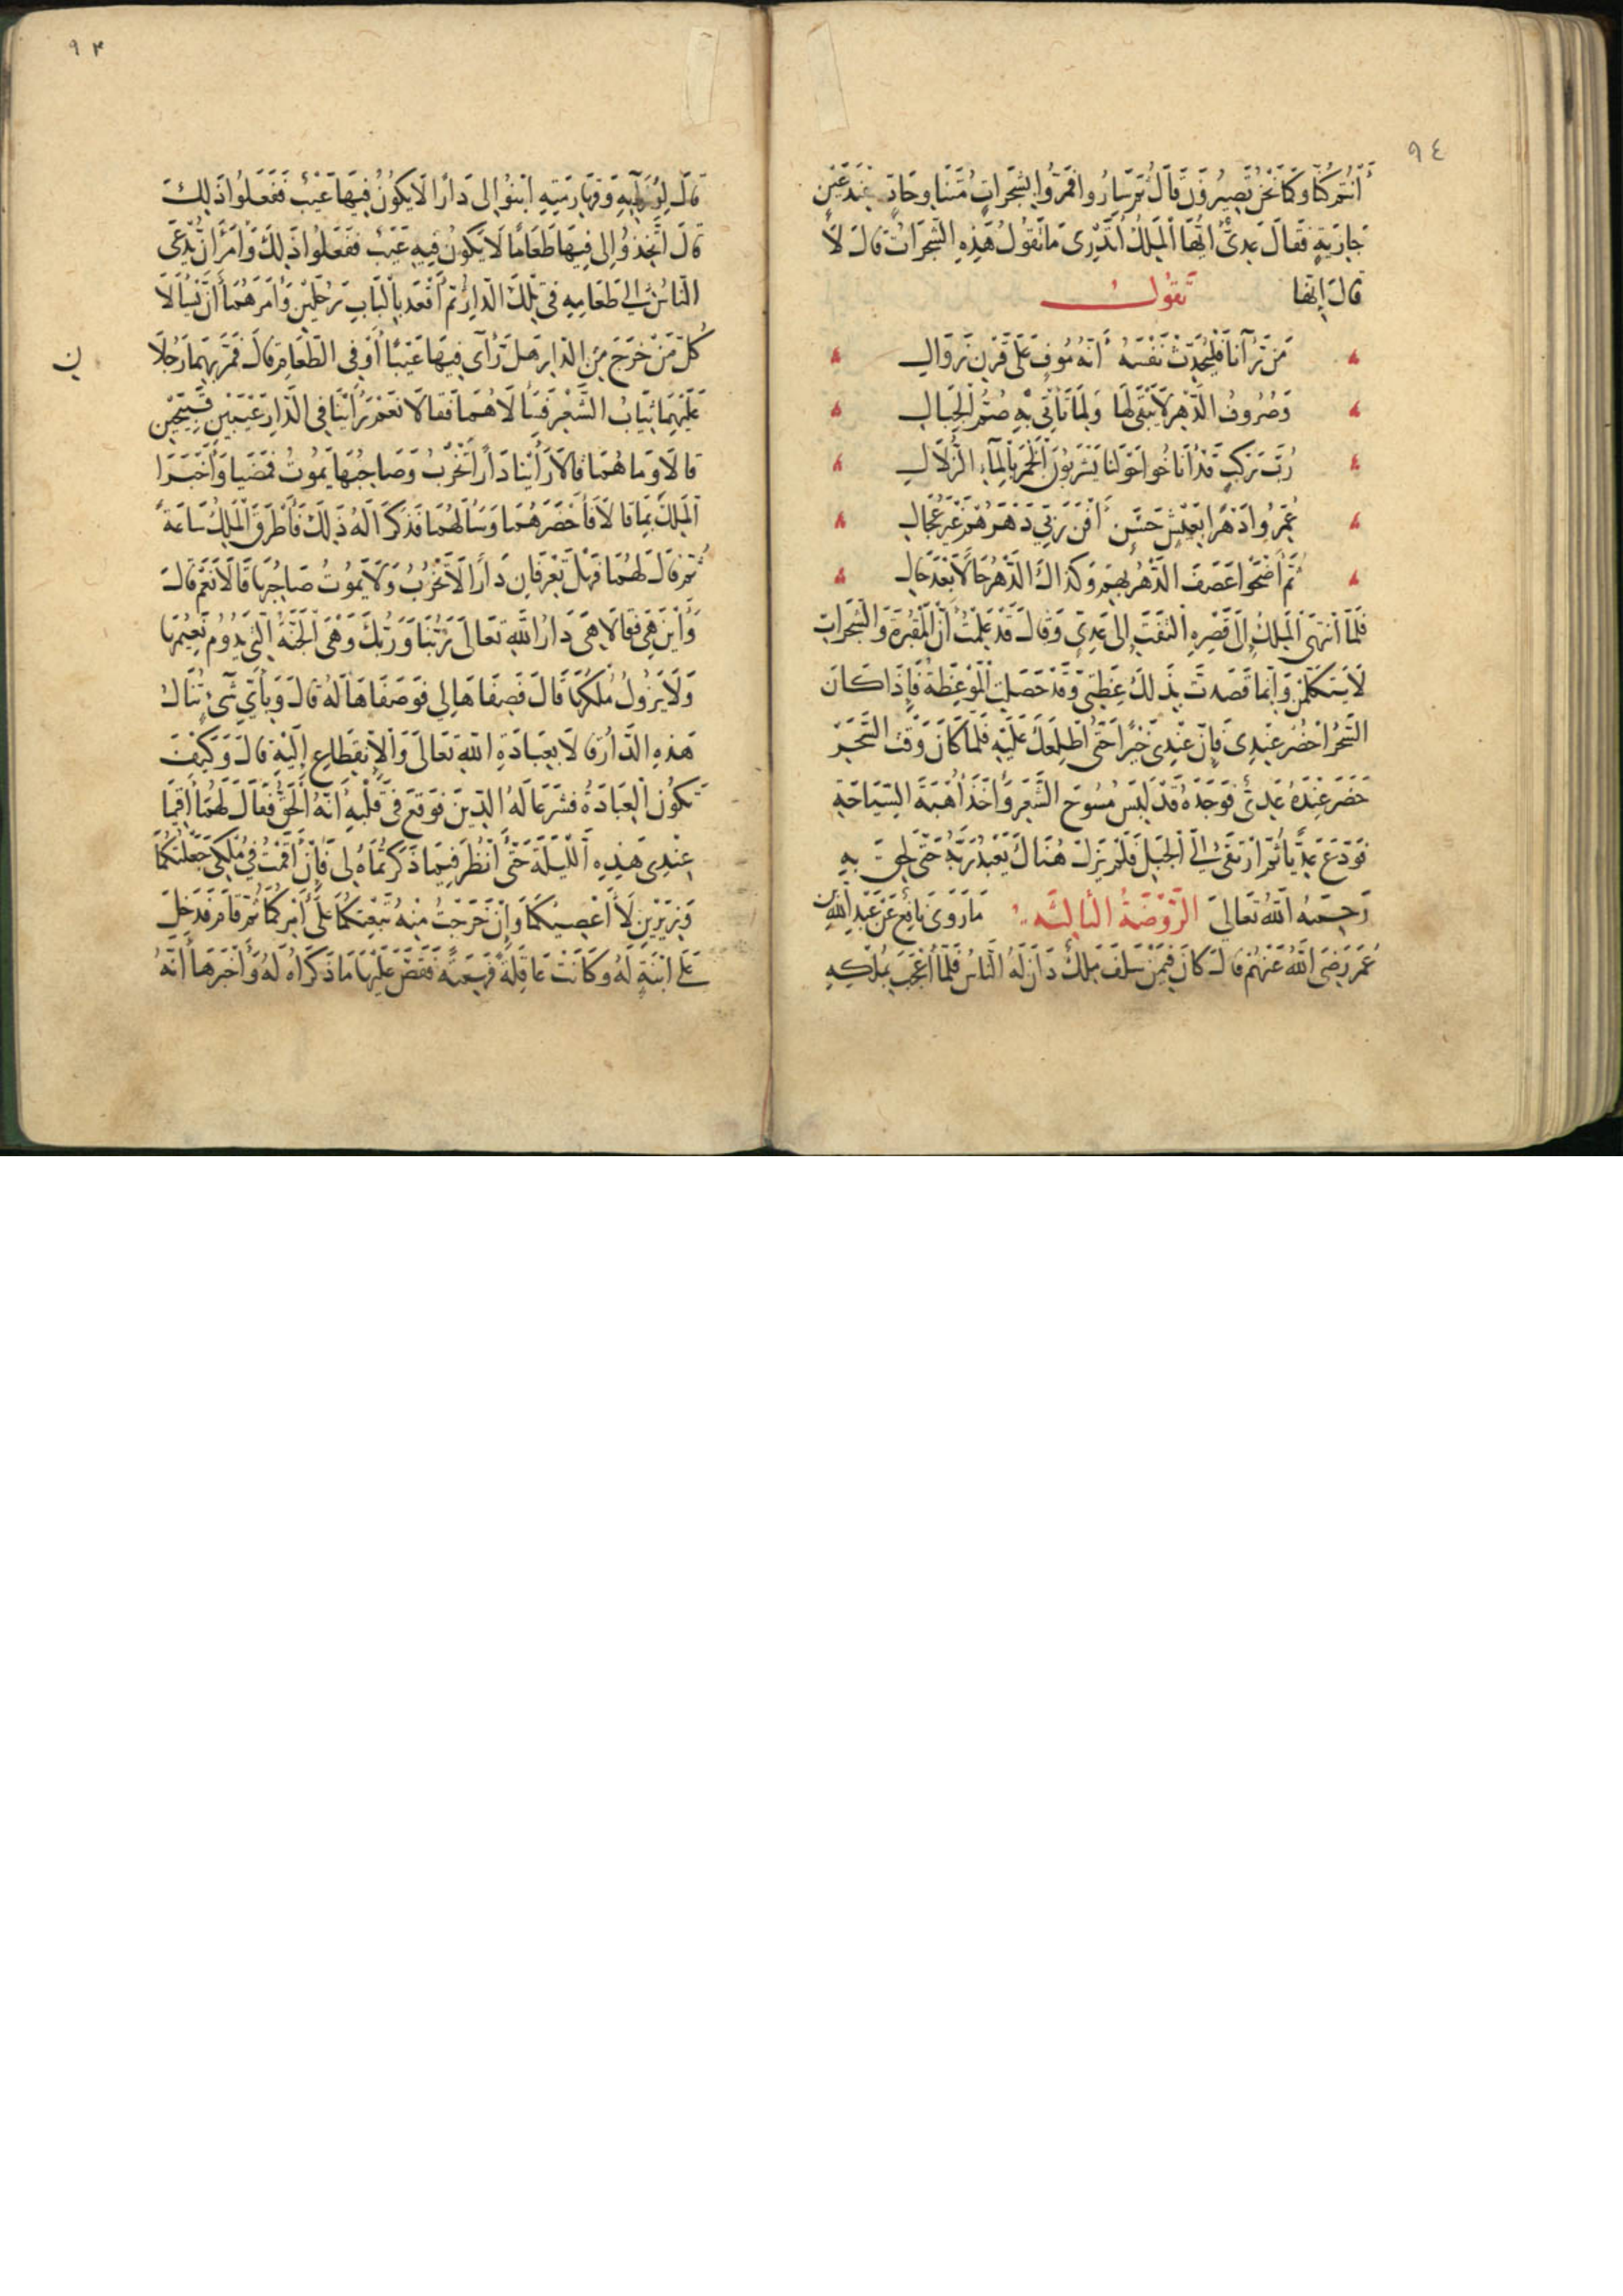 ٩٤
أَنْتُمْ كُنَّا وَكَمَا نَحْنُ تَصِيرُونَ قَالَ ثُمَّ سَارُوا فَمَرُّوا بِشَجَرَاتٍ مُتَنَاوِحَاتٍ عِنْدَ عَيْنٍ
جَارِيَةٍ فَقَالَ عَدِيٌّ أَيُّهَا الْمَلِكُ أَتَدْرِي مَا تَقُولُ هَذِهِ الشَّجَرَاتُ قَالَ لَا
قَالَ إِنَّهَا تَقُولُ
مَنْ رَآنَا فَلْيُحَدِّثْ نَفْسَهُ أَنَّهُ مُوفٍ عَلَى قَرْنِ زَوَالِ
وَصُرُوفُ الدَّهْرِ لَا يَبْقَى لَهَا وَلِمَا تَأْتِي بِهِ صُمُّ الْجِبَالِ
رُبَّ رَكْبٍ قَدْ أَنَاخُوا حَوْلَنَا يَشْرَبُونَ الْخَمْرَ بِالْمَاءِ الزُّلَالِ
عُمِّرُوا دَهْرًا بِعَيْشٍ حَسَنٍ دَهْرَهُمْ غَيْرَ عِجَالِ
ثُمَّ أَضْحَوْا عَصَفَ الدَّهْرُ بِهِمْ وَكَذَاكَ الدَّهْرُ حَالًا بَعْدَ حَالِ
فَلَمَّا انْتَهَى الْمَلِكُ إِلَى قَصْرِهِ الْتَفَتَ إِلَى عَدِيٍّ وَقَالَ قَدْ عَلِمْتُ أَنَّ الْمَقْبُرَةَ وَالشَّجَرَاتِ
لَا يَتَكَلَّمْنَ وَإِنَّمَا قَصَدْتَ بِذَلِكَ عِظَتِي وَقَدْ حَصَلَتِ الْمَوْعِظَةُ فَإِذَا كَانَ
السَّحَرُ احْضُرْ عِنْدِي فَإِنَّ عِنْدِي خَبَرًا حَتَّى أُطْلِعَكَ عَلَيْهِ فَلَمَّا كَانَ وَقْتُ السَّحَرِ
حَضَرَ عِنْدَهُ عَدِيٌّ فَوَجَدَهُ قَدْ لَبِسَ مُسُوحَ الشَّعَرِ وَأَخَذَ أُهْبَةَ السِّيَاحَةِ
فَوَدَّعَ عَدِيًّا ثُمَّ ارْتَقَى إِلَى الْجَبَلِ فَلَمْ يَزَلْ هُنَاكَ يَعْبُدُ رَبَّهُ حَتَّى لَحِقَ بِهِ
رَحِمَهُ اللَّهُ تَعَالَى الرَّوْضَةُ الثَّالِثَةُ مَا رَوَى نَافِعٌ عَنْ عَبْدِ اللَّهِ بْنِ
عُمَرَ رَضِيَ اللَّهُ عَنْهُمْ قَالَ كَانَ فِيمَنْ سَلَفَ مَلِكٌ دَانَ لَهُ النَّاسُ فَلَمَّا أُعْجِبَ بِمُلْكِهِ
٩٣
قَالَ وَقَهَارِمَتِهِ ابْنُوا لِي دَارًا لَا يَكُونُ فِيهَا عَيْبٌ فَفَعَلُوا ذَلِكَ
قَالَ اتَّخِذُوا لِي فِيهَا طَعَامًا لَا يَكُونُ فِيهِ عَيْبٌ فَفَعَلُوا ذَلِكَ وَأَمَرَ أَنْ يُدْعَى
النَّاسُ إِلَى طَعَامِهِ فِي تِلْكَ الدَّارِ ثُمَّ أَقْعَدَ بِالْبَابِ رَجُلَيْنِ وَأَمَرَهُمَا أَنْ يَسْأَلَا
كُلَّ مَنْ خَرَجَ مِنَ الدَّارِ هَلْ رَأَى فِيهَا عَيْبًا أَوْ فِي الطَّعَامِ قَالَ فَمَرَّ بِهِمَا رَجُلَانِ
عَلَيْهِمَا ثِيَابُ الشَّعْرِ فَسَأَلَاهُمَا فَقَالَا نَعَمْ رَأَيْنَا فِي الدَّارِ عَيْبَيْنِ قَبِيحَيْنِ
قَالَا وَمَا هُمَا قَالَا رَأَيْنَا دَارًا تَخْرَبُ وَصَاحِبُهَا يَمُوتُ فَمَضَيَا وَأَخْبَرَا
الْمَلِكَ بِمَا قَالَا فَأَحْضَرَهُمَا وَسَأَلَهُمَا فَذَكَرَا لَهُ ذَلِكَ فَأَطْرَقَ الْمَلِكُ سَاعَةً
ثُمَّ قَالَ لَهُمَا فَهَلْ تَعْرِفَانِ دَارًا لَا تَخْرَبُ وَلَا يَمُوتُ صَاحِبُهَا قَالَا نَعَمْ قَالَ
وَأَيْنَ هِيَ فَقَالَا هِيَ دَارُ اللَّهِ تَعَالَى رَبُّنَا وَرَبُّكَ وَهِيَ الْجَنَّةُ الَّتِي يَدُومُ نَعِيمُهَا
وَلَا يَزُولُ مُلْكُهَا قَالَ فَصِفَاهَا لِي فَوَصَفَاهَا لَهُ قَالَ وَبِأَيِّ شَيْءٍ تُنَالُ
هَذِهِ الدَّارُ قَالَا بِعِبَادَةِ اللَّهِ تَعَالَى وَالِانْقِطَاعِ إِلَيْهِ قَالَ وَكَيْفَ
تَكُونُ الْعِبَادَةُ فَشَرَعَا لَهُ الدِّينَ فَوَقَعَ فِي قَلْبِهِ أَنَّهُ الْحَقُّ فَقَالَ لَهُمَا أَقِيمَا
عِنْدِي هَذِهِ اللَّيْلَةَ حَتَّى أَنْظُرَ فِيمَا ذَكَرْتُمَاهُ لِي فَإِنْ أَقَمْتُ فِي مُلْكِي جَعَلْتُكُمَا
وَزِيرَيْنِ لَا أَعْصِيكُمَا وَإِنْ خَرَجْتُ مِنْهُ تَبِعْتُكُمَا عَلَى أَمْرِكُمَا ثُمَّ قَامَ فَدَخَلَ
عَلَى ابْنَةٍ لَهُ وَكَانَتْ عَاقِلَةً فَهِمَةً فَقَصَّ عَلَيْهَا مَا ذَكَرَاهُ لَهُ وَأَخْبَرَهَا أَنَّهُ